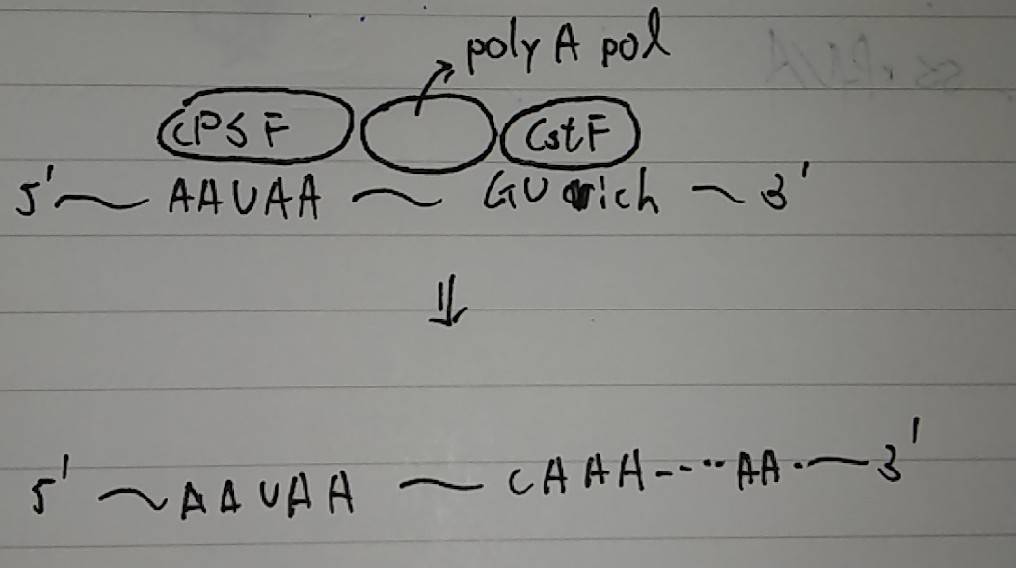 poly A pol
CPSF CstF
5' ~ AAUAA ~ GU rich ~ 3'
5' ~ AAUAA ~ CAAA---··AA·~3'